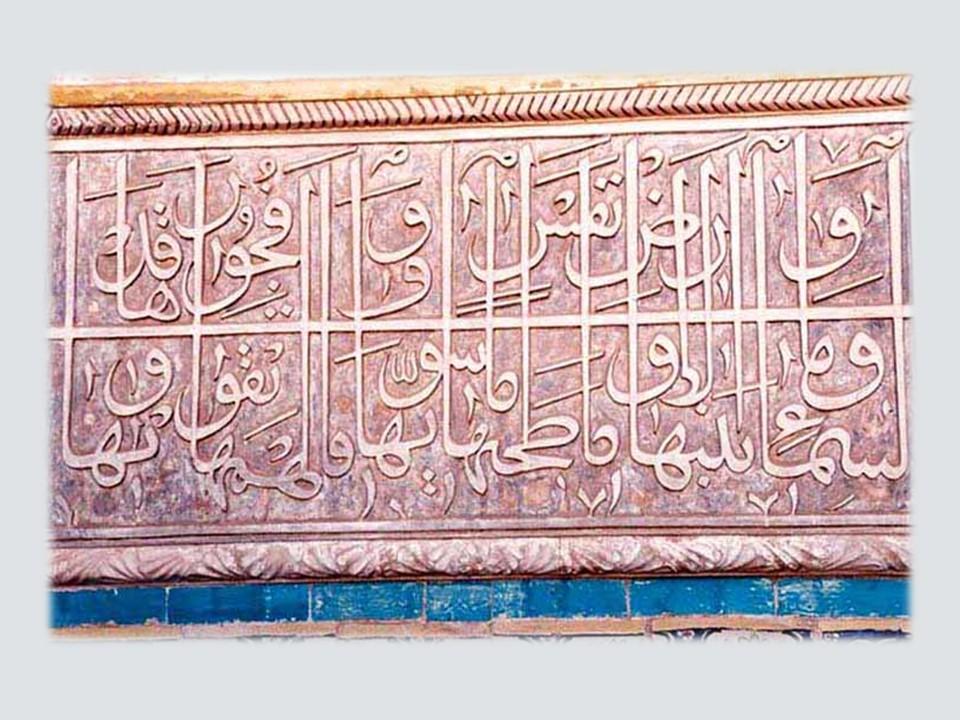 والسماء وما بنيها والارض وما طحيها ونفس وما سويها فالهمها فجورها وتقويها قد